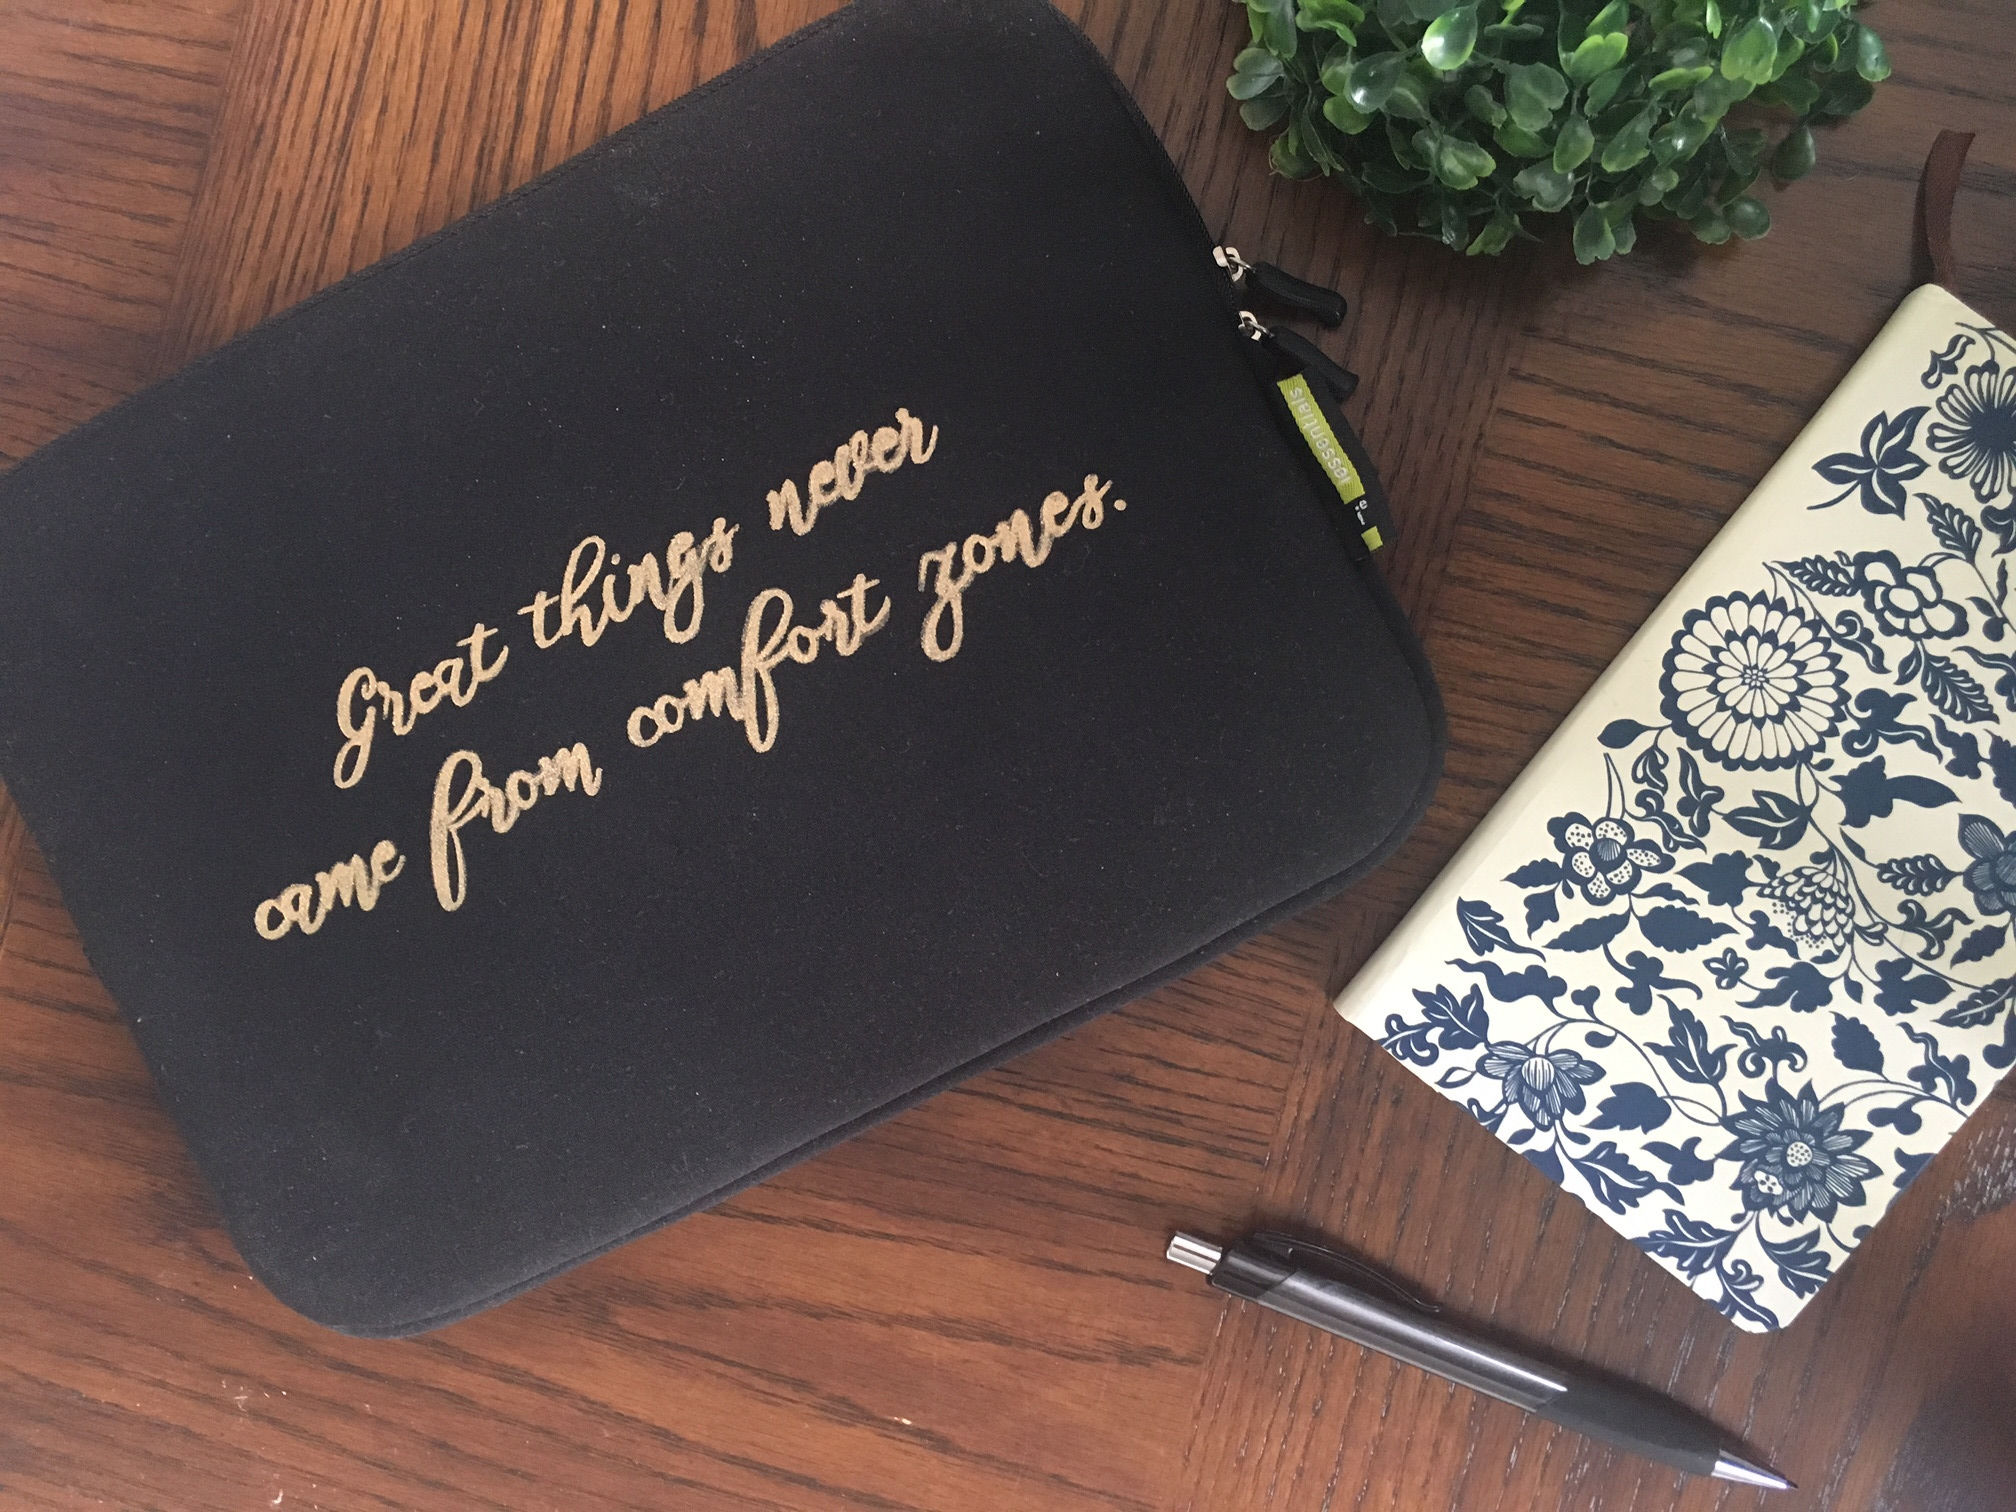 Great things never
came from comfort zones.
iessentials
ie!